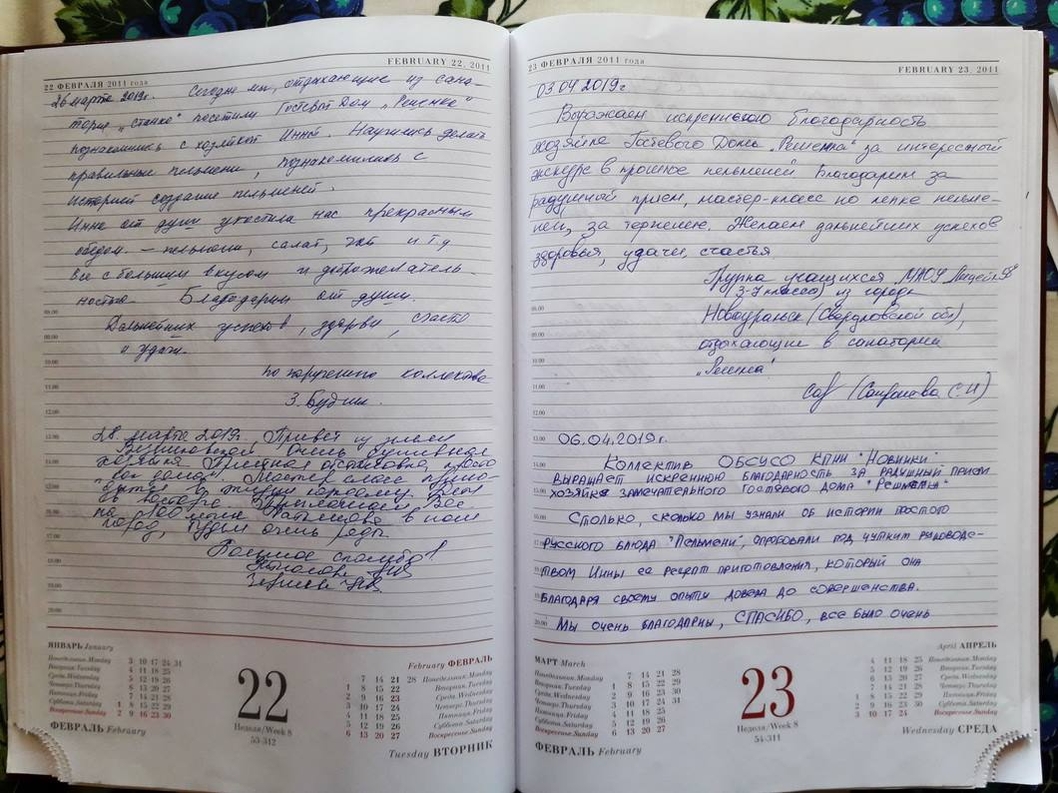 22 ФЕВРАЛЯ 2011 года
FEBRUARY 22, 2011
26 марта 2019г. Сегодня мы, отдыхающие из сана-
тория „Станко" посетили Гостевой Дом „Решемка"
познакомились с хозяйкой Инной. Научились делать
правильные пельмени, познакомились с
историей создания пельменей.
Инна от души угостила нас прекрасным
обедом – пельмени, салат, чай и т.д
Все с большим вкусом и доброжелатель-
ностью. Благодарим от души.
Дальнейших успехов, здоровья, счастья
и удачи.
По поручению коллектива
З. Будник.
28 марта 2019г. Привет из земли
Очень душевная
хозяйка Приятная обстановка, просто
Мастер класс
до восторга
на 100
город, будем очень рады.
Большое спасибо!
08:00
09:00
10:00
11:00
12:00
13:00
14:00
15:00
16:00
17:00
18:00
19:00
20:00
ЯНВАРЬ January
Понедельник.Monday 3 10 17 24 31
Вторник.Tuesday 4 11 18 25
Среда.Wednesday 5 12 19 26
Четверг.Thursday 6 13 20 27
Пятница.Friday 7 14 21 28
Суббота.Saturday 1 8 15 22 29
Воскресенье.Sunday 2 9 16 23 30
ФЕВРАЛЬ February
22
Неделя/Week 8
53-312
February ФЕВРАЛЬ
7 14 21 28 Понедельник.Monday
1 8 15 22 Вторник.Tuesday
2 9 16 23 Среда.Wednesday
3 10 17 24 Четверг.Thursday
4 11 18 25 Пятница.Friday
5 12 19 26 Суббота.Saturday
6 13 20 27 Воскресенье.Sunday
Tuesday ВТОРНИК
23 ФЕВРАЛЯ 2011 года
FEBRUARY 23, 2011
03 04 2019г
Выражаем искреннюю благодарность
хозяйке Гостевого Дома „Решемка" за интересный
экскурс в прошлое пельменей Благодарим за
радушный прием, мастер-класс по лепке пельме-
ней, за терпение. Желаем дальнейших успехов
здоровья, удачи, счастья.
Группа учащихся МАОУ Лицей №58
(3-7 классов) из города
Новоуральск (Свердловской обл),
отдыхающие в санатории
„Решма"
06.04.2019г.
КОЛЛЕКТИВ ОБСУСО КПНИ "НОВИНКИ"
ВЫРАЖАЕТ ИСКРЕННЮЮ БЛАГОДАРНОСТЬ ЗА РАДУШНЫЙ ПРИЕМ
ХОЗЯЙКЕ ЗАМЕЧАТЕЛЬНОГО ГОСТЕВОГО ДОМА "РЕШЕМКА"
СТОЛЬКО, СКОЛЬКО МЫ УЗНАЛИ ОБ ИСТОРИИ ПРОСТОГО
РУССКОГО БЛЮДА "ПЕЛЬМЕНИ", ОПРОБОВАЛИ ПОД ЧУТКИМ РУКОВОДС-
ТВОМ ИННЫ ЕЕ РЕЦЕПТ ПРИГОТОВЛЕНИЯ, КОТОРЫЙ ОНА
БЛАГОДАРЯ СВОЕМУ ОПЫТУ ДОВЕЛА ДО СОВЕРШЕНСТВА.
МЫ ОЧЕНЬ БЛАГОДАРНЫ, СПАСИБО, ВСЕ БЫЛО ОЧЕНЬ
МАРТ March
Понедельник.Monday 7 14 21 28
Вторник.Tuesday 1 8 15 22 29
Среда.Wednesday 2 9 16 23 30
Четверг.Thursday 3 10 17 24 31
Пятница.Friday 4 11 18 25
Суббота.Saturday 5 12 19 26
Воскресенье.Sunday 6 13 20 27
ФЕВРАЛЬ February
23
Неделя/Week 8
54-311
April АПРЕЛЬ
4 11 18 25 Понедельник.Monday
5 12 19 26 Вторник.Tuesday
6 13 20 27 Среда.Wednesday
7 14 21 28 Четверг.Thursday
1 8 15 22 29 Пятница.Friday
2 9 16 23 30 Суббота.Saturday
3 10 17 24 Воскресенье.Sunday
Wednesday СРЕДА